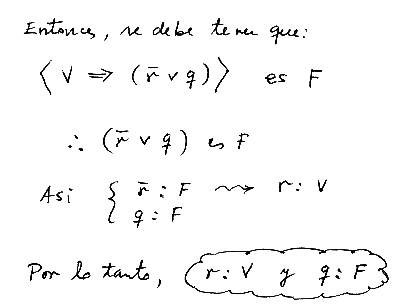 Entonces, se debe tener que:
⟨ V ⇒ ( r̄ ∨ q ) ⟩ es F
∴ ( r̄ ∨ q ) es F
Asi { r̄ : F ⇝ r : V
q : F
Por lo tanto, r : V y q : F